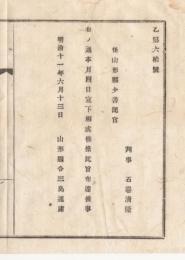 乙第六拾號
判事 石卷清隆
任山形縣少書記官
右ノ通本月四日宣下相成候條此旨布達候事
明治十一年六月十三日 山形縣令三島通庸